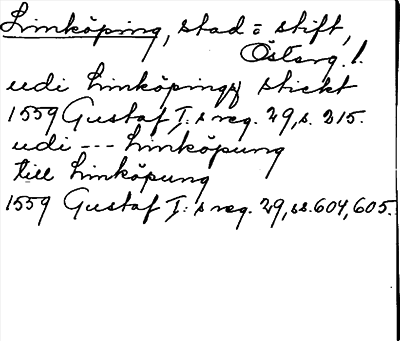 Linköping, stad o stift,
Österg. l.
udi Linköpings stickt
1559 Gustaf I: s reg. 29, s. 215.
udi --- Linköpung
till Linköpung
1559 Gustaf I: s reg. 29, ss. 604, 605.